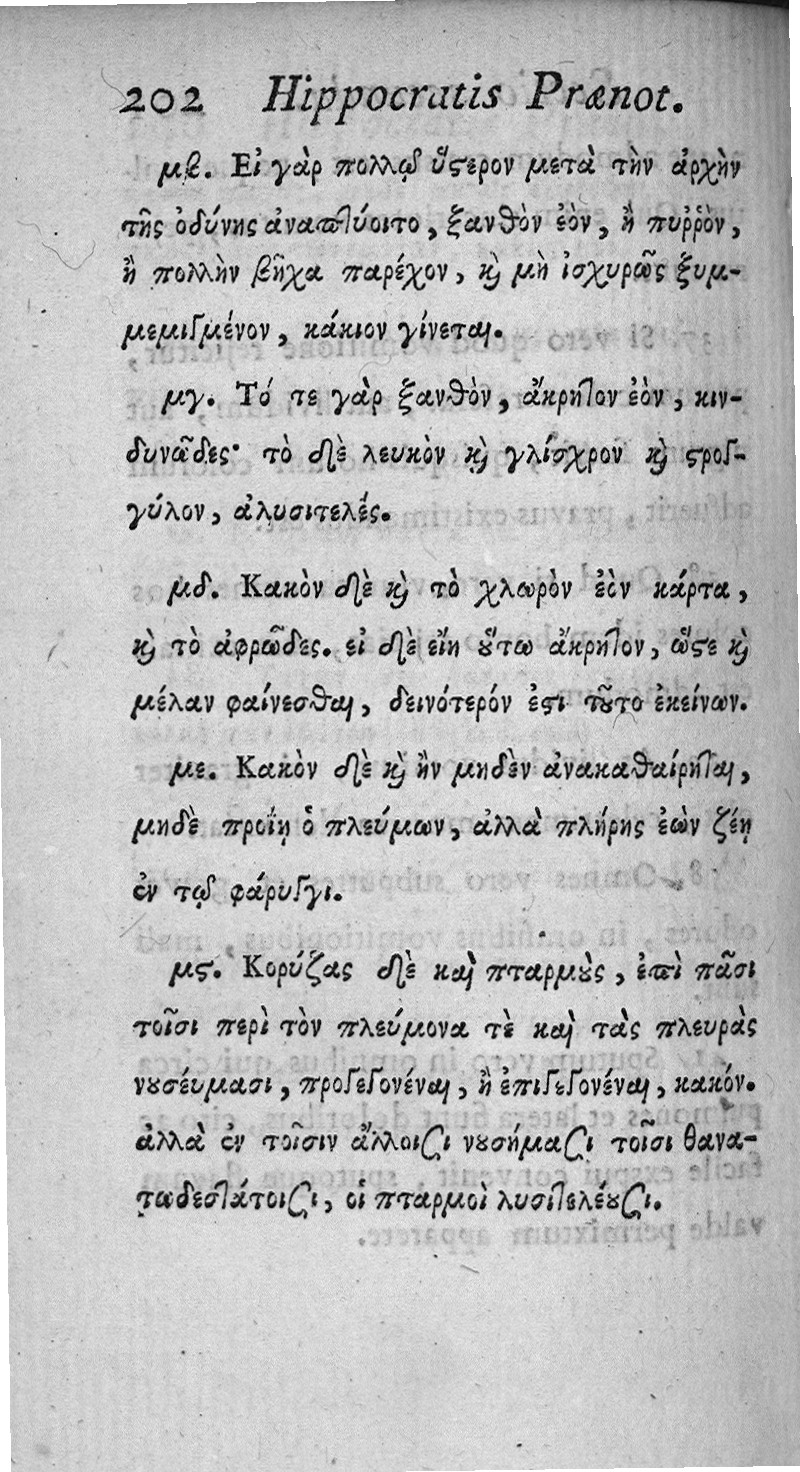 202 Hippocratis Prænot.
μβ. Εἰ γὰρ πολλῷ ὕϛερον μετὰ τὴν ἀρχὴν
τῆς ὀδύνης ἀναπτύοιτο, ξανθὸν ἐὸν, ἢ πυῤῥὸν,
ἢ πολλὴν βῆχα παρέχον, ϗ̀ μὴ ἰσχυρῶς ξυμ-
μεμιγμένον, κάκιον γίνεται.
μγ. Τό τε γὰρ ξανθὸν, ἄκρητον ἐὸν, κιν-
δυνῶδες· τὸ δὲ λευκὸν ϗ̀ γλίσχρον ϗ̀ ϛρογ-
γύλον, ἀλυσιτελές.
μδ. Κακὸν δὲ ϗ̀ τὸ χλωρὸν ἐὸν κάρτα,
ϗ̀ τὸ ἀφρῶδες. εἰ δὲ εἴη ȣ̔́τω ἄκρητον, ὥϛε ϗ̀
μέλαν φαίνεσθαι, δεινότερόν ἐϛι τȣ͂το ἐκείνων.
με. Κακὸν δὲ ϗ̀ ἢν μηδὲν ἀνακαθαίρηται,
μηδὲ προΐῃ ὁ πλεύμων, ἀλλὰ πλήρης ἐὼν ζέῃ
ἐν τῷ φάρυγγι.
μϛ. Κορύζας δὲ καὶ πταρμȣ̀ς, ἐπὶ πᾶσι
τοῖσι περὶ τὸν πλεύμονα τὲ καὶ τὰς πλευρὰς
νȣσεύμασι, προγεγονέναι, ἢ ἐπιγεγονέναι, κακόν.
ἀλλὰ ἐν τοῖσιν ἄλλοισι νȣσήμασι τοῖσι θανα-
τωδεστάτοισι, οἱ πταρμοὶ λυσιτελέȣσι.